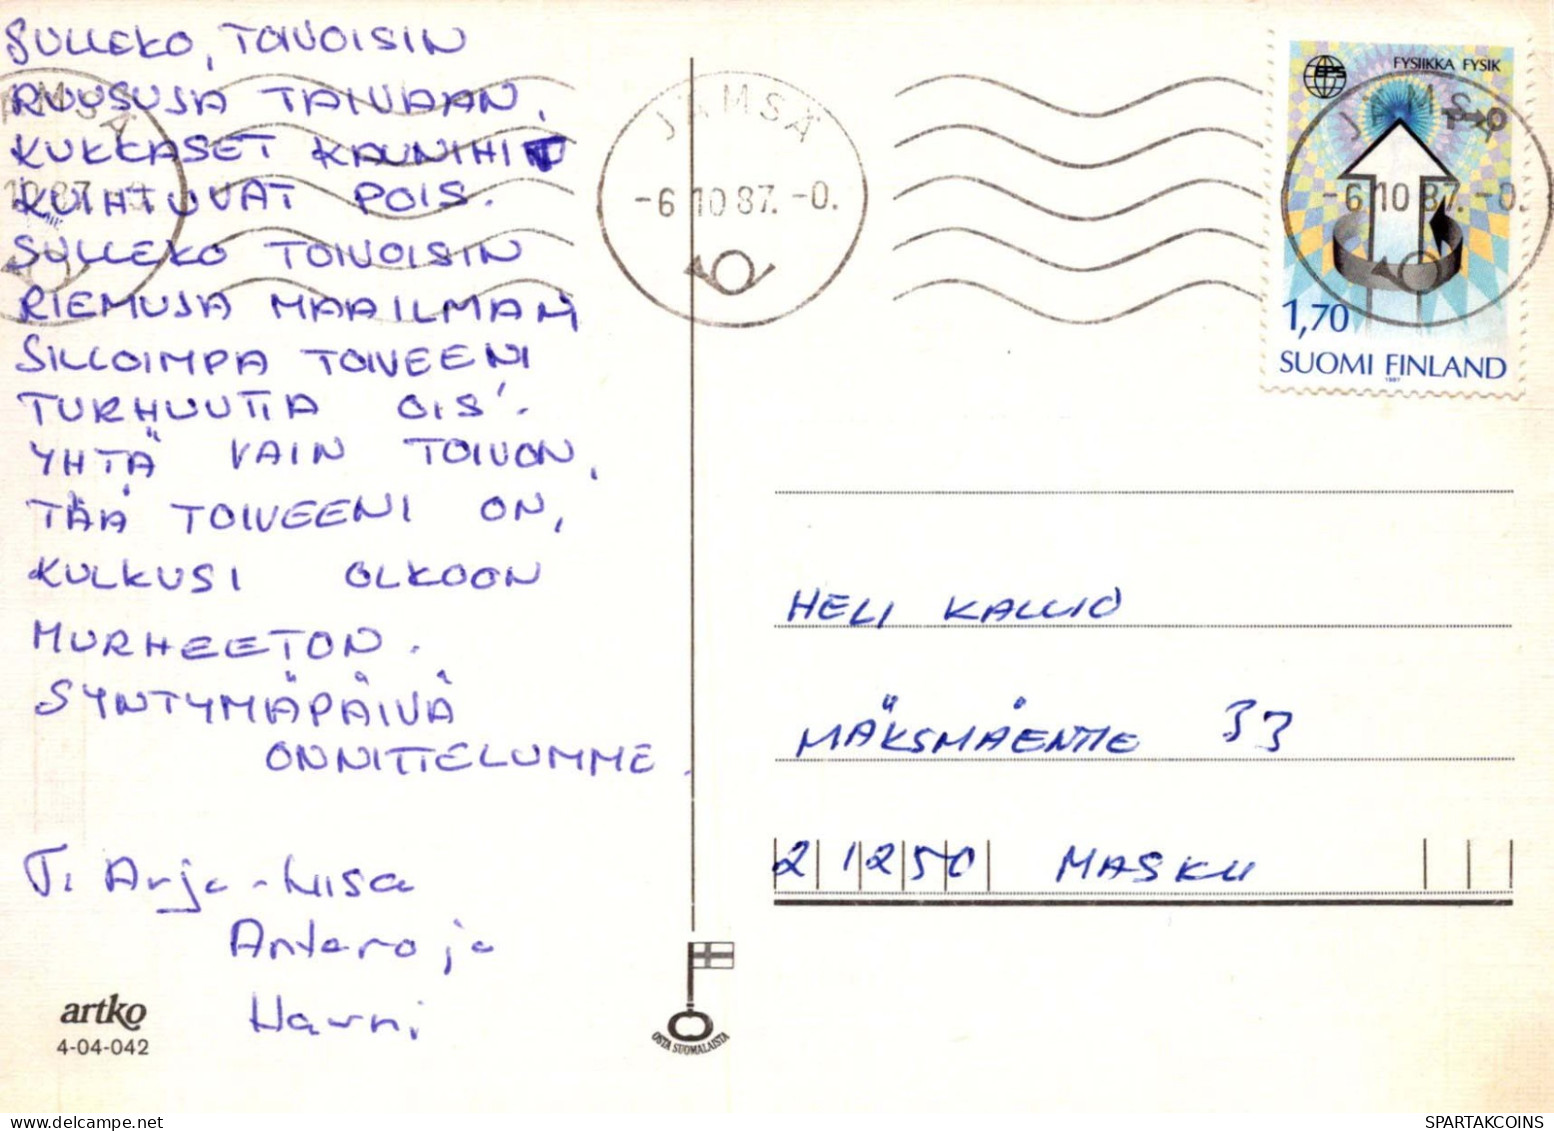 SULLEKO, TOIVOISIN
RUUSUJA TAIVAAN,
KUKKASET KAUNIHIT
KUIHTUVAT POIS.
SULLEKO TOIVOISIN
RIEMUJA MAAILMAN
SILLOIMPA TOIVEENI
TURHUUTTA OIS'.
YHTÄ VAIN TOIVON,
TÄÄ TOIVEENI ON,
KULKUSI OLKOON
MURHEETON.
SYNTYMÄPÄIVÄ
ONNITTELUMME.
T. Arja-Liisa
Antero ja
Harri
artko
4-04-042
OSTA SUOMALAISTA
JÄMSÄ
-6.10 87.-0.
FYSIIKKA FYSIK
EPS
JÄMSÄ
-6.10 87.-0.
1,70
SUOMI FINLAND
1987
HELI KALLIO
MÄKSMÄENTIE 33
21250 MASKU
SPARTAKCOINS